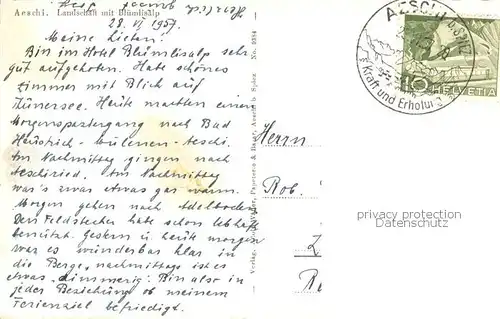 Aeschi. Landschaft mit Blümlisalp
28. VI 1957.
Meine Lieben!
Bin im Hotel Blümlisalp sehr
gut aufgehoben. Habe schönes
Zimmer mit Blick auf
Thunersee. Heute machten einen
Morgenspaziergang nach Bad
Heustrich - Mülenen - Aeschi.
Am Nachmittag gingen nach
Aeschiried. Am Nachmittag
war's zwar etwas gar warm.
Morgen gehen nach Adelboden.
Den Feldstecher habe schon lebhaft
benützt. Gestern u heute morgen
war es wunderbar klar in
die Berge, nachmittags ist es
etwas "dimmerig". Bin also in
jeder Beziehung ob meinem
Ferienziel befriedigt.
No. 2284
Aeschi b. Spiez
Herrn
Rob.
Z
AESCHI
Kraft und Erholung
10 HELVETIA
privacy protection
COPYRIGHT